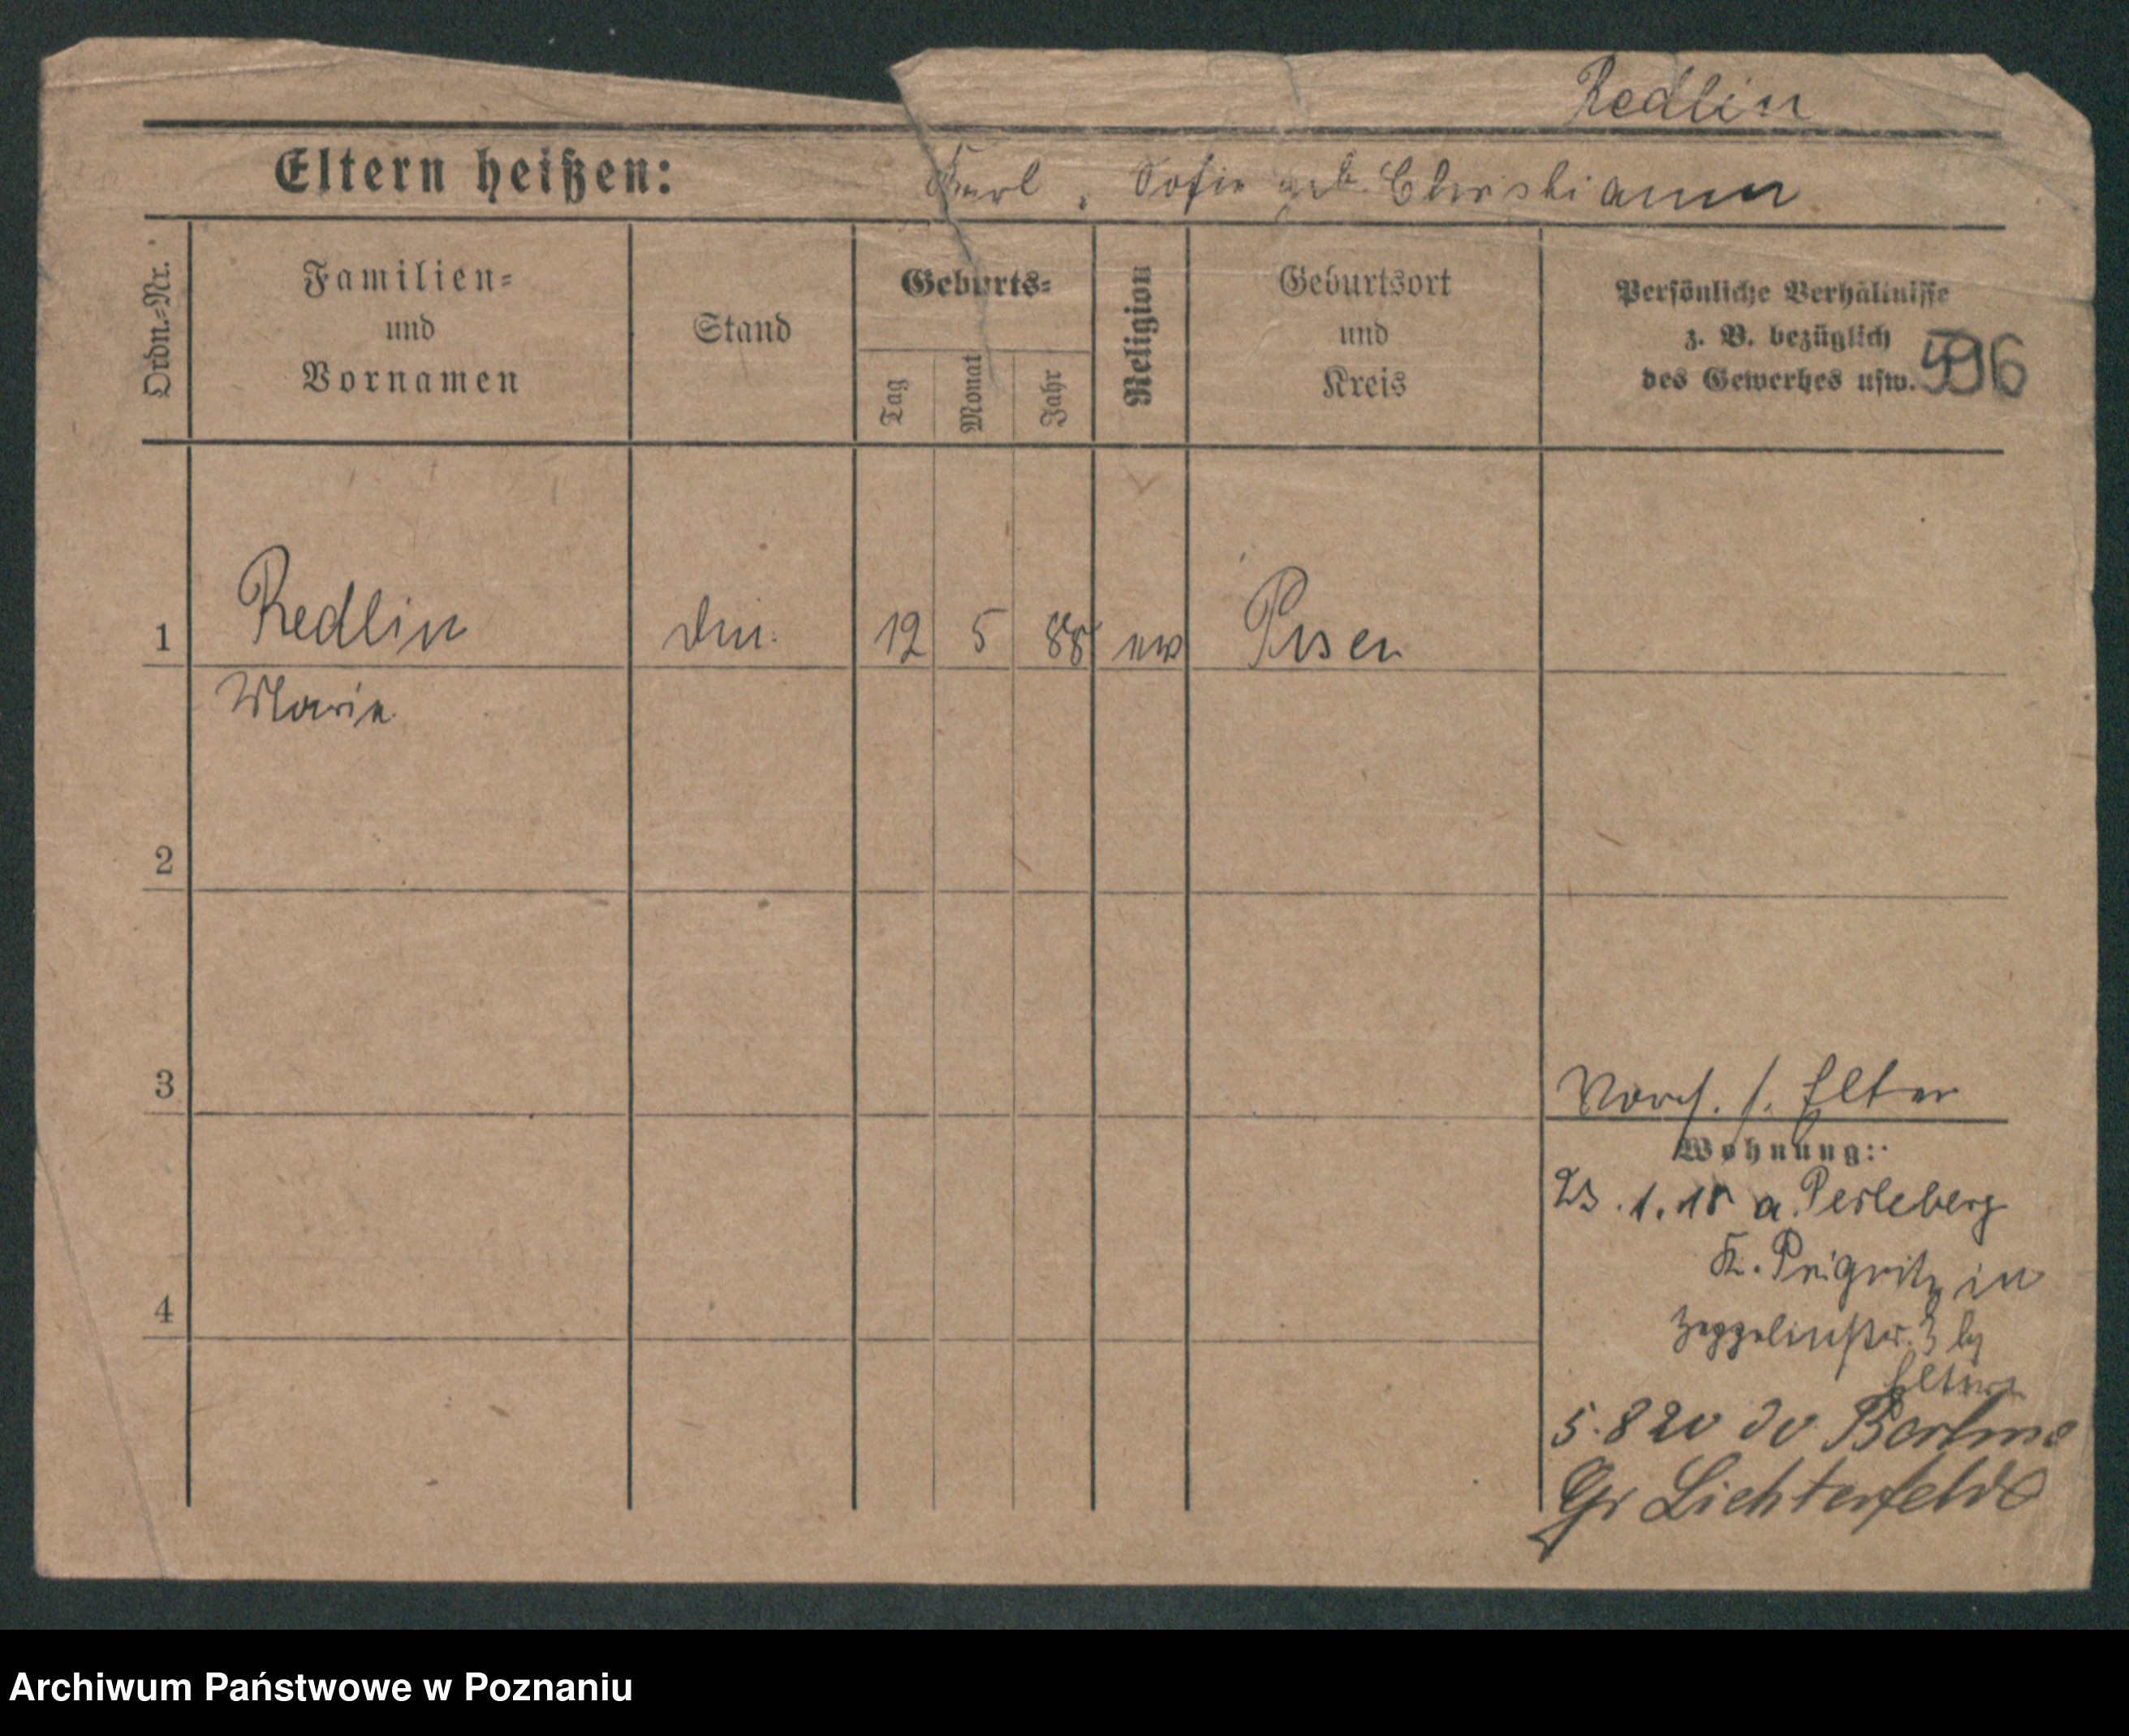 Redlin
Eltern heißen: Karl, Sofie geb. Christiann
Ordn.-Nr.
Familien-
und
Vornamen
Stand
Geburts-
Tag
Monat
Jahr
Religion
Geburtsort
und
Kreis
Persönliche Verhältnisse
z. B. bezüglich
des Gewerbes usw. 596
1 Redlin 12 5 88 ev Posen
Marie
2
3
4
f. Elter
Wohnung:
23.1.18 a. Perleberg
K. Prignitz in
Zeppelinstr. 3 by
Eltern
5.8 20 Berlin
Gr Lichterfelde
Archiwum Państwowe w Poznaniu